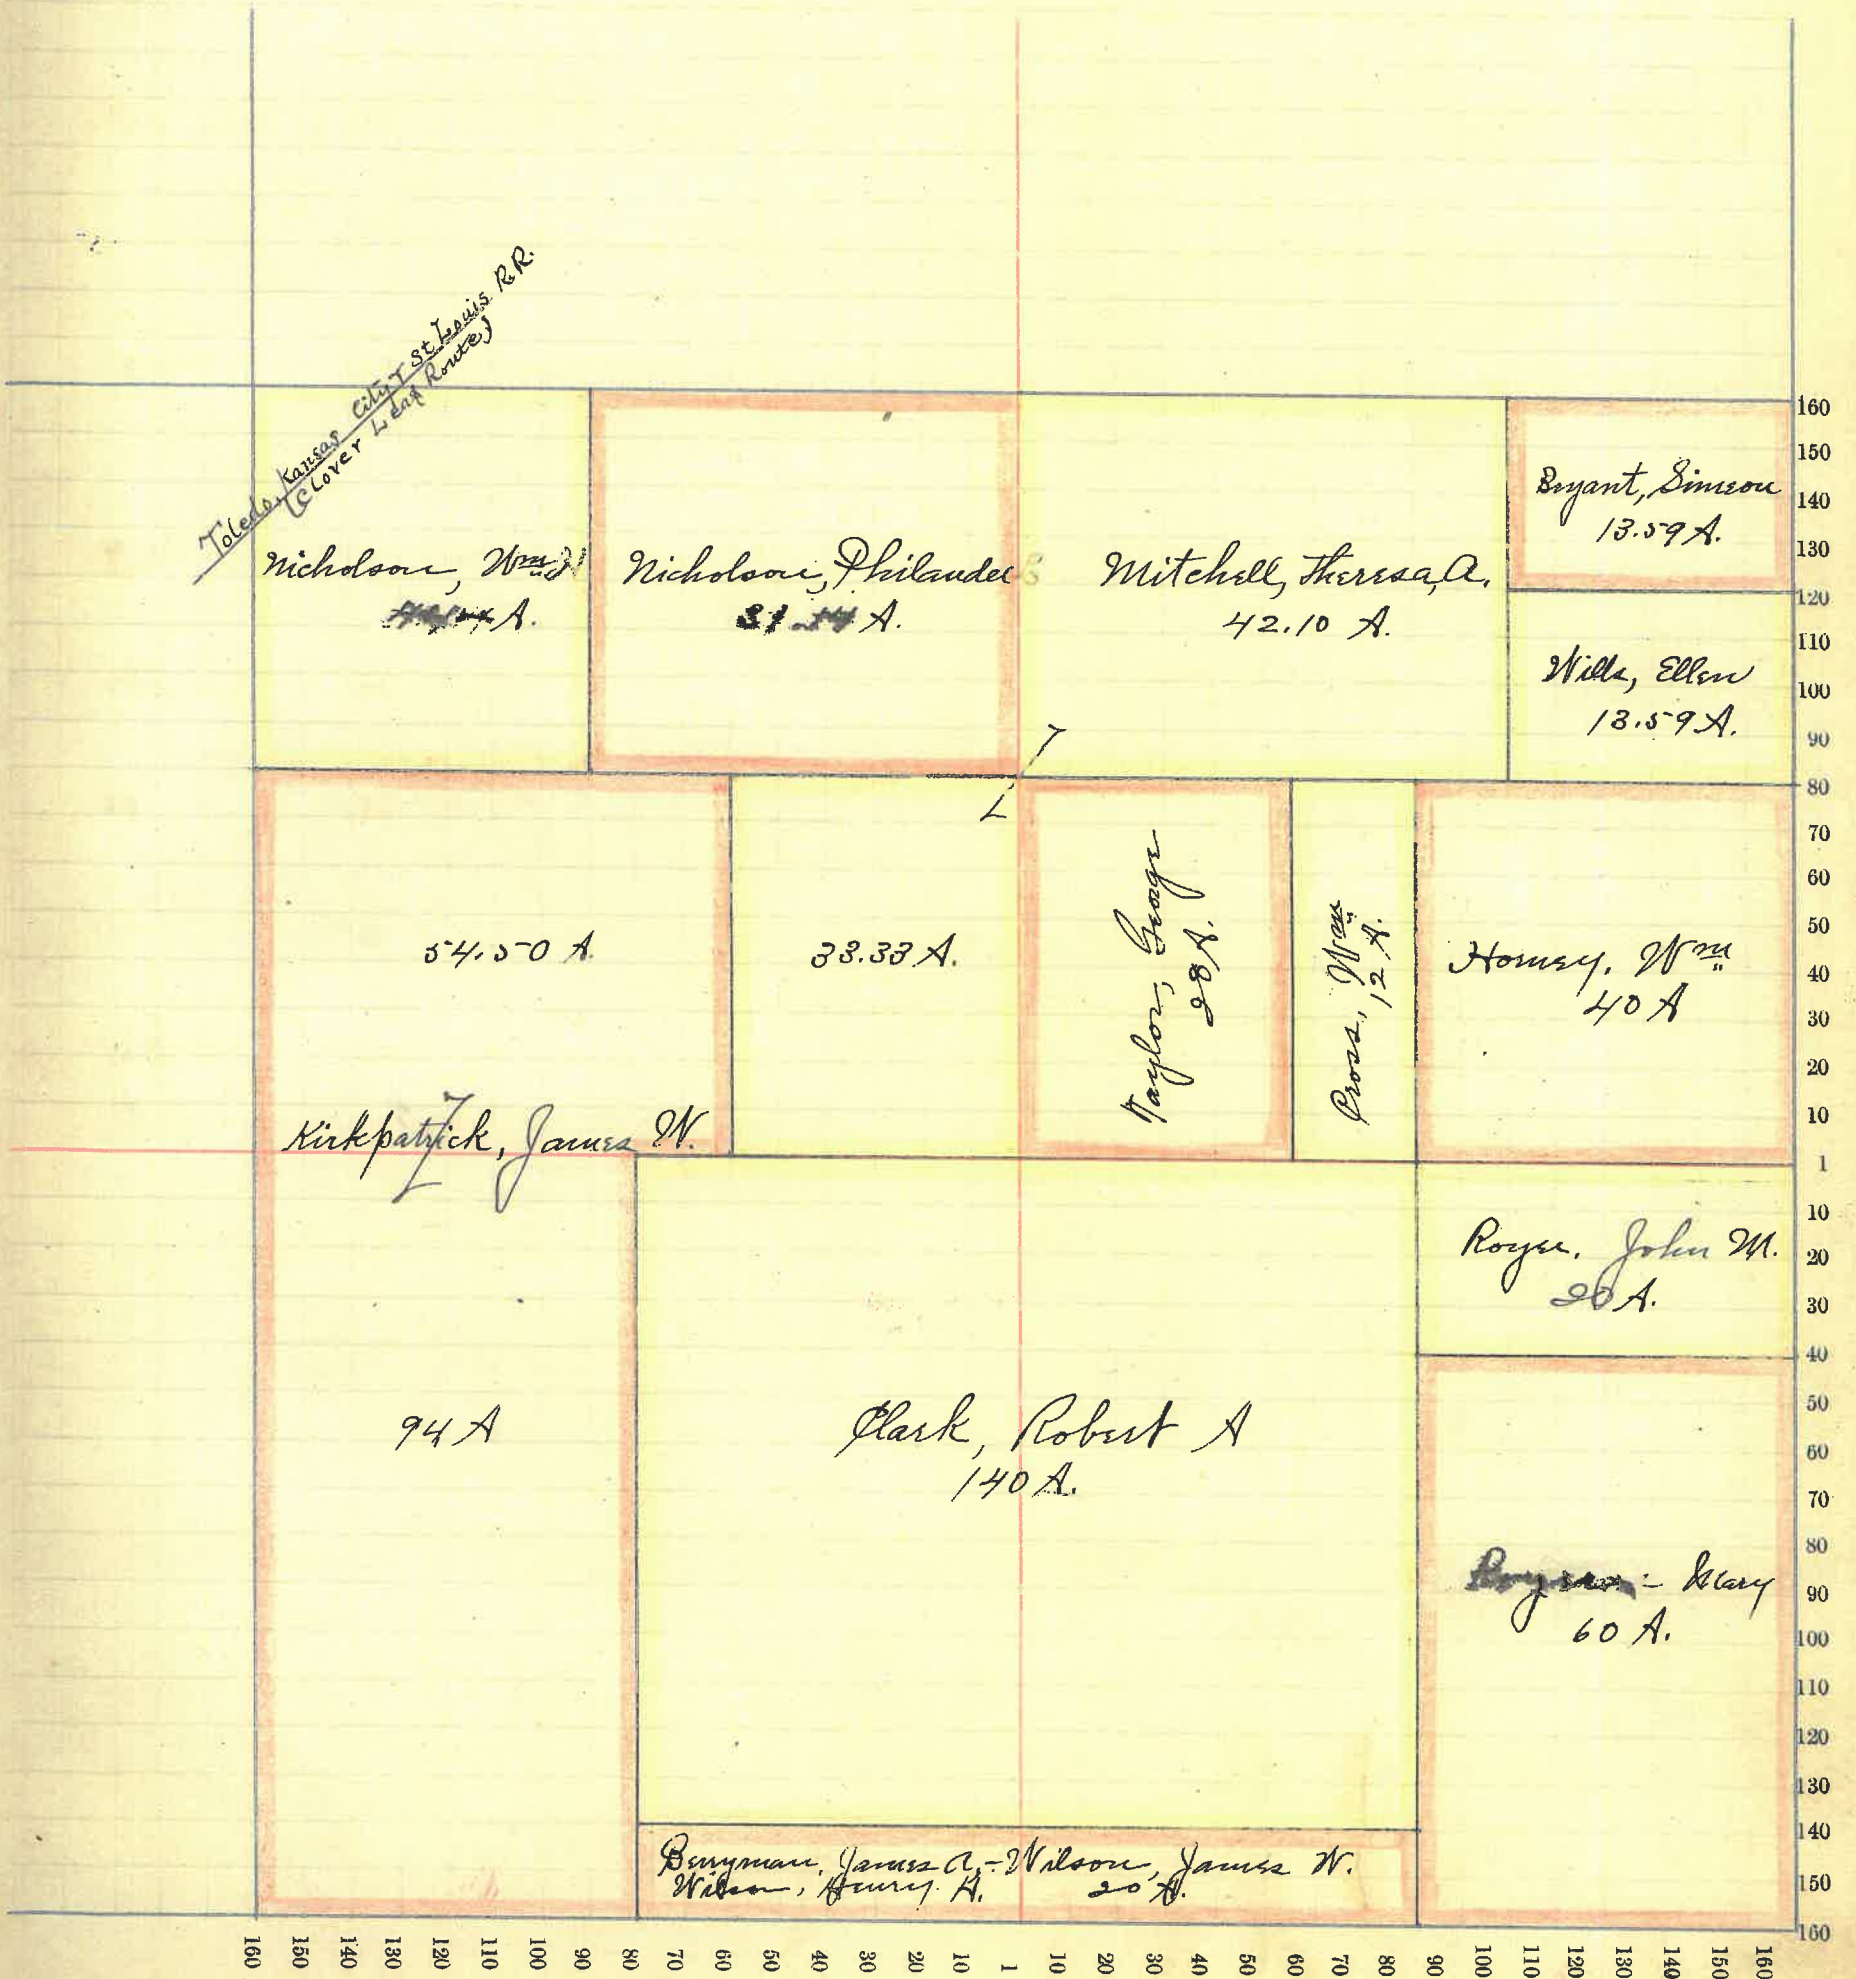 Toledo, Kansas City & St Louis. R.R.
(Clover Leaf Route)
Nicholson, Wm
A.
Nicholson, Philander
A.
Mitchell, Theresa, A.
42.10 A.
Bryant, Simeon
13.59 A.
Wills, Ellen
13.59 A.
54.50 A.
33.33 A.
Taylor, George
28 A.
Pross, Wm
12 A.
Horney, Wm
40 A
Kirkpatrick, James W.
94 A
Clark, Robert A
140 A.
Royer, John M.
20 A.
Mary
60 A.
Berryman, James A,-Wilson, James W.
Wilson, Henry. H. 20 A.
160
150
140
130
120
110
100
90
80
70
60
50
40
30
20
10
1
10
20
30
40
50
60
70
80
90
100
110
120
130
140
150
160
160 150 140 130 120 110 100 90 80 70 60 50 40 30 20 10 1 10 20 30 40 50 60 70 80 90 100 110 120 130 140 150 160